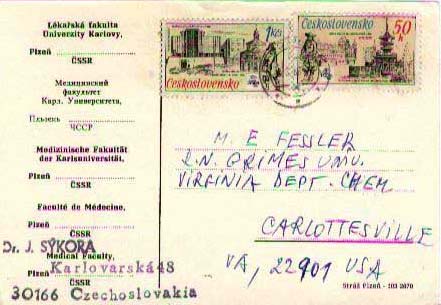 Lékařská fakulta
Univerzity Karlovy,
Plzeň
ČSSR
Медицинский
факультет
Карл. Университета,
Пльзень
ЧССР
Medizinische Fakultät
der Karlsuniversität,
Plzeň
ČSSR
Faculté de Médecine,
Plzeň
ČSSR
Medical Faculty,
Dr. J. SÝKORA
Karlovarská 48
30166 Czechoslovakia
1 Kčs
Československo
Československo
50 h
M. E FESSLER
R.N. GRIMES UNIV.
VIRGINIA DEPT. CHEM
CARLOTTESVILLE
VA, 22901 USA
Stráž Plzeň - 103 2070